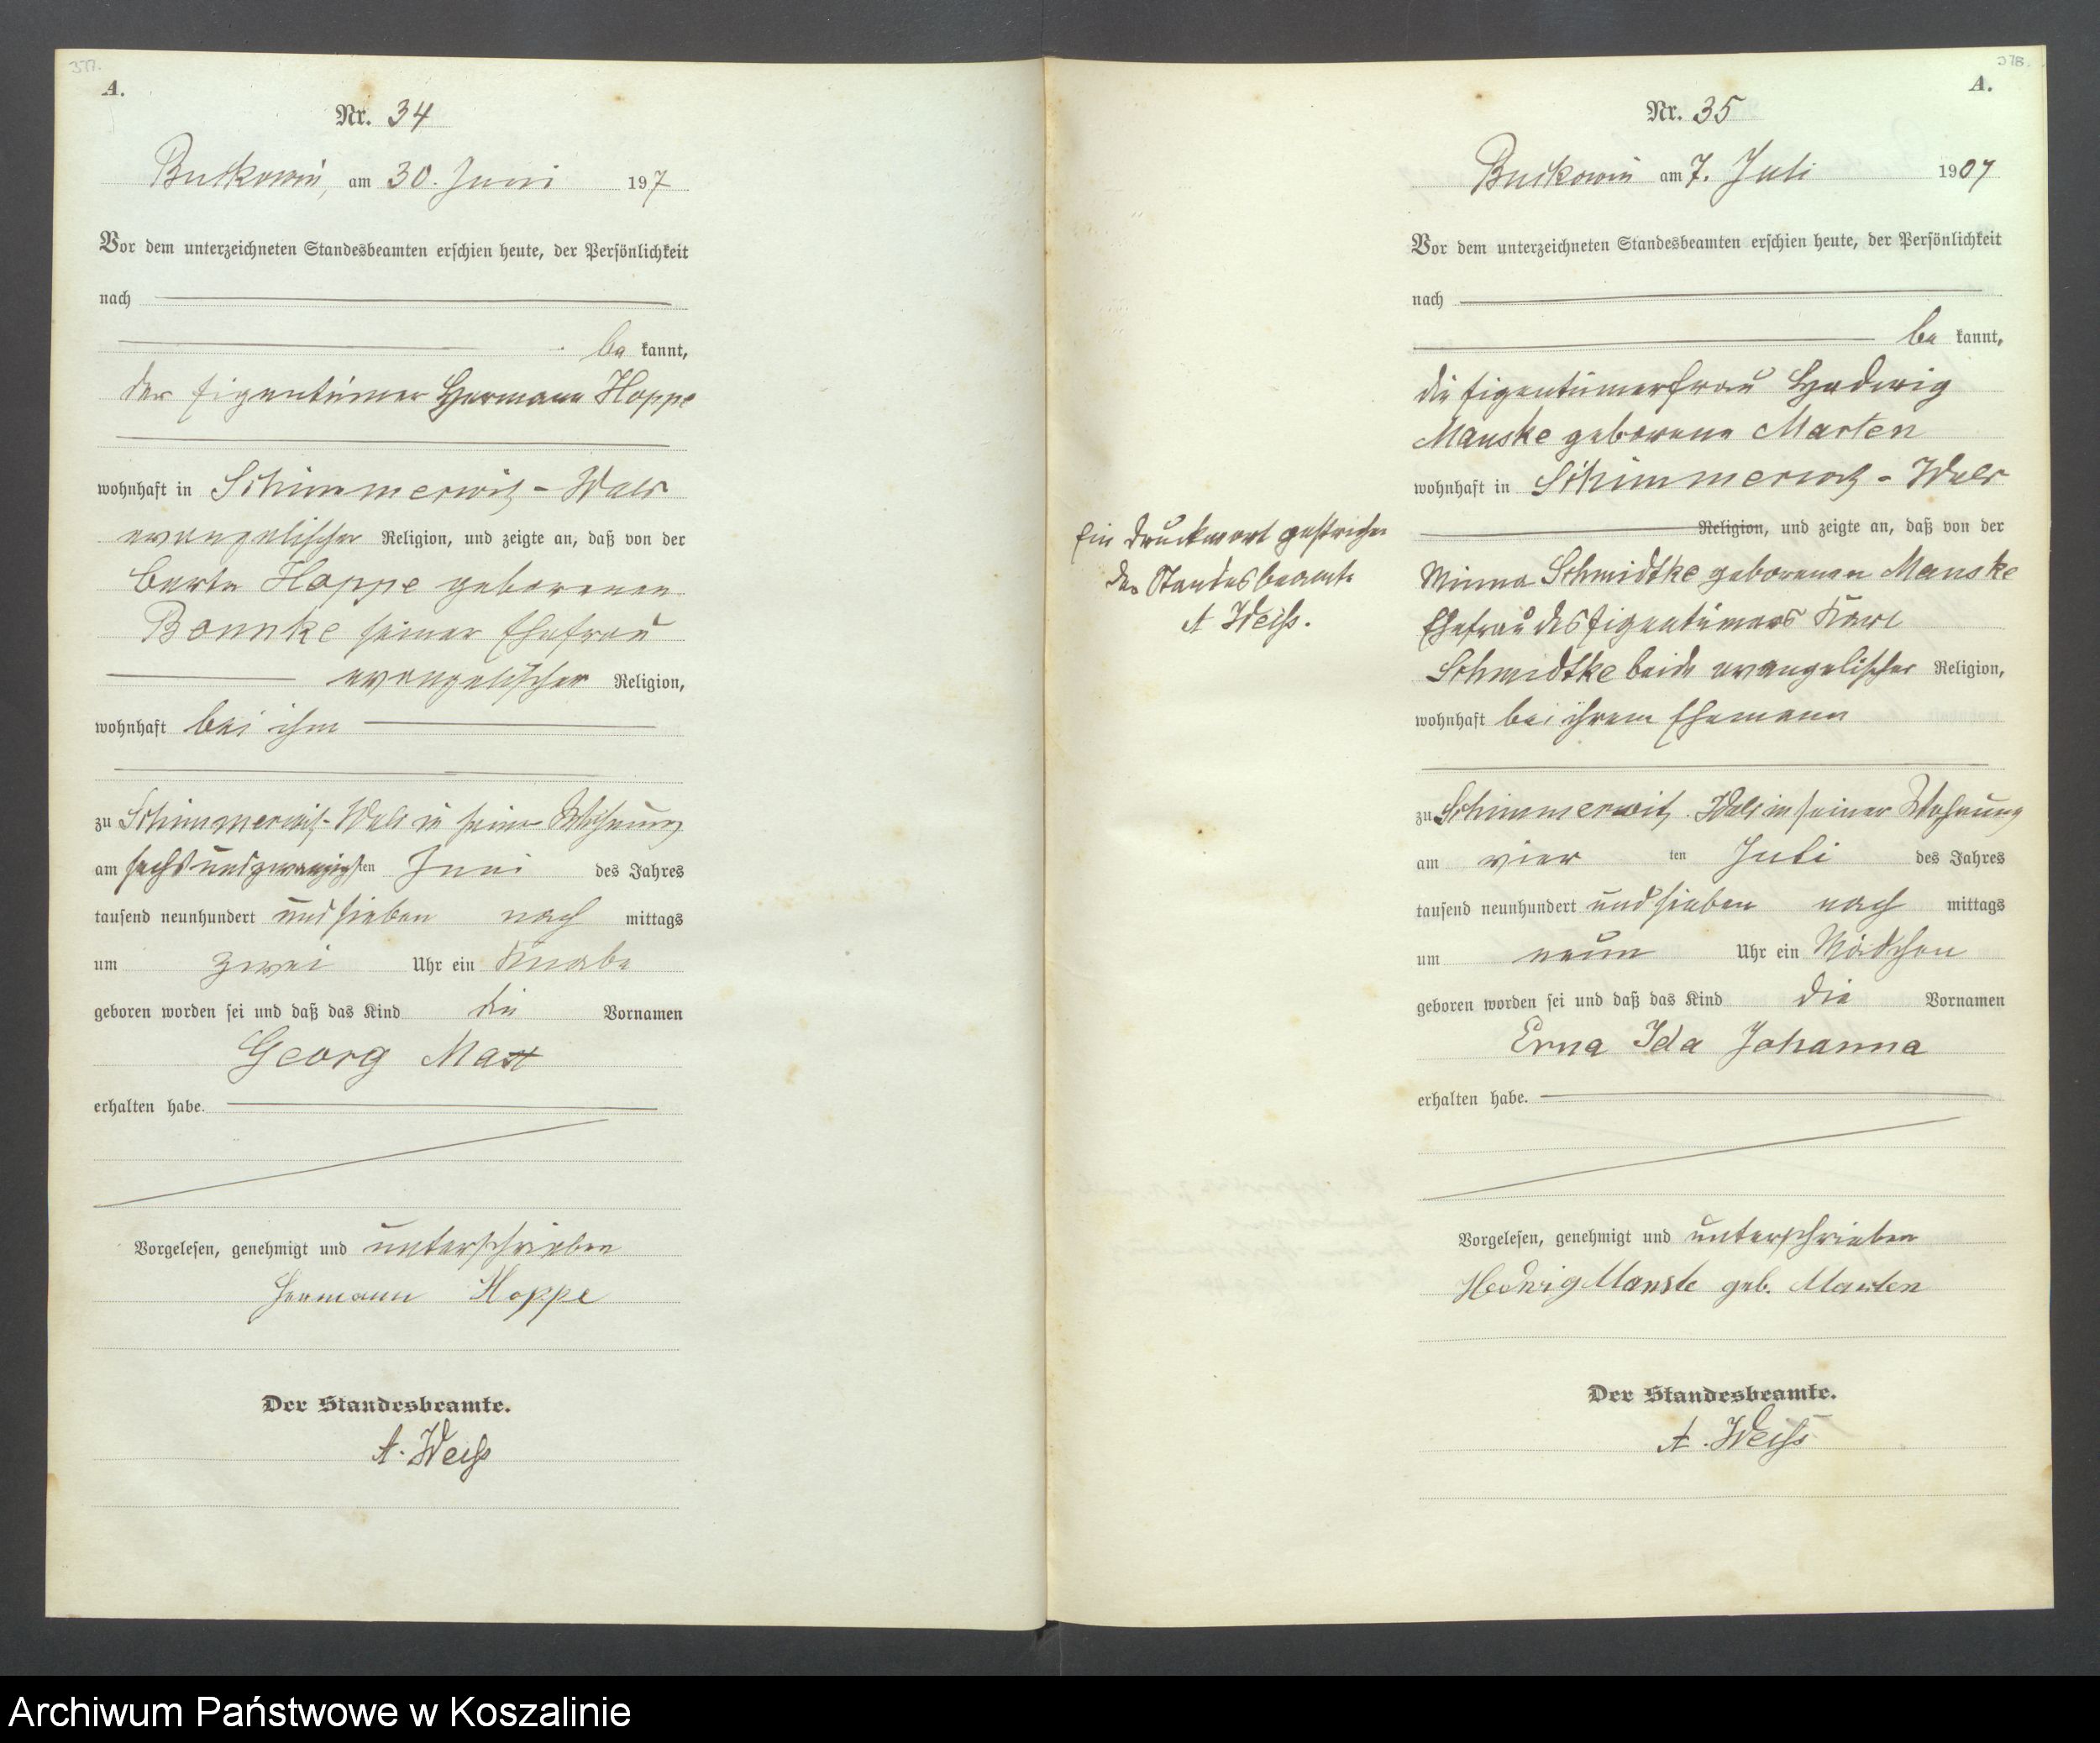 377.
A.
Nr. 34
Buckowin, am 30. Juni 197
Vor dem unterzeichneten Standesbeamten erschien heute, der Persönlichkeit
nach
be kannt,
der Eigentümer Hermann Hoppe
wohnhaft in Schimmerwitz - Wald
evangelischer Religion, und zeigte an, daß von der
Berta Hoppe geborenen
Bonnke seiner Ehefrau
evangelischer Religion,
wohnhaft bei ihm
zu Schimmerwitz - Wald in seiner Wohnung
am sechsundzwanzigsten Juni des Jahres
tausend neunhundert und sieben nach mittags
um zwei Uhr ein Knabe
geboren worden sei und daß das Kind die Vornamen
Georg Max
erhalten habe.
Vorgelesen, genehmigt und unterschrieben
Hermann Hoppe
Der Standesbeamte.
A. Weiß
378.
A.
Nr. 35
Buckowin am 7. Juli 1907
Vor dem unterzeichneten Standesbeamten erschien heute, der Persönlichkeit
nach
be kannt,
die Eigentümerfrau Hedwig
Manske geborene Marten
wohnhaft in Schimmerwitz - Wald
Religion, und zeigte an, daß von der
Minna Schmidtke geborenen Manske
Ehefrau des Eigentümers Karl
Schmidtke beide evangelischer Religion,
wohnhaft bei ihrem Ehemann
zu Schimmerwitz - Wald in seiner Wohnung
am vier ten Juli des Jahres
tausend neunhundert und sieben nach mittags
um neun Uhr ein Mädchen
geboren worden sei und daß das Kind die Vornamen
Erna Ida Johanna
erhalten habe.
Vorgelesen, genehmigt und unterschrieben
Hedwig Manske geb. Marten
Der Standesbeamte.
A. Weiß
Ein Druckwort gestrichen
Der Standesbeamte
A Weiß.
Archiwum Państwowe w Koszalinie